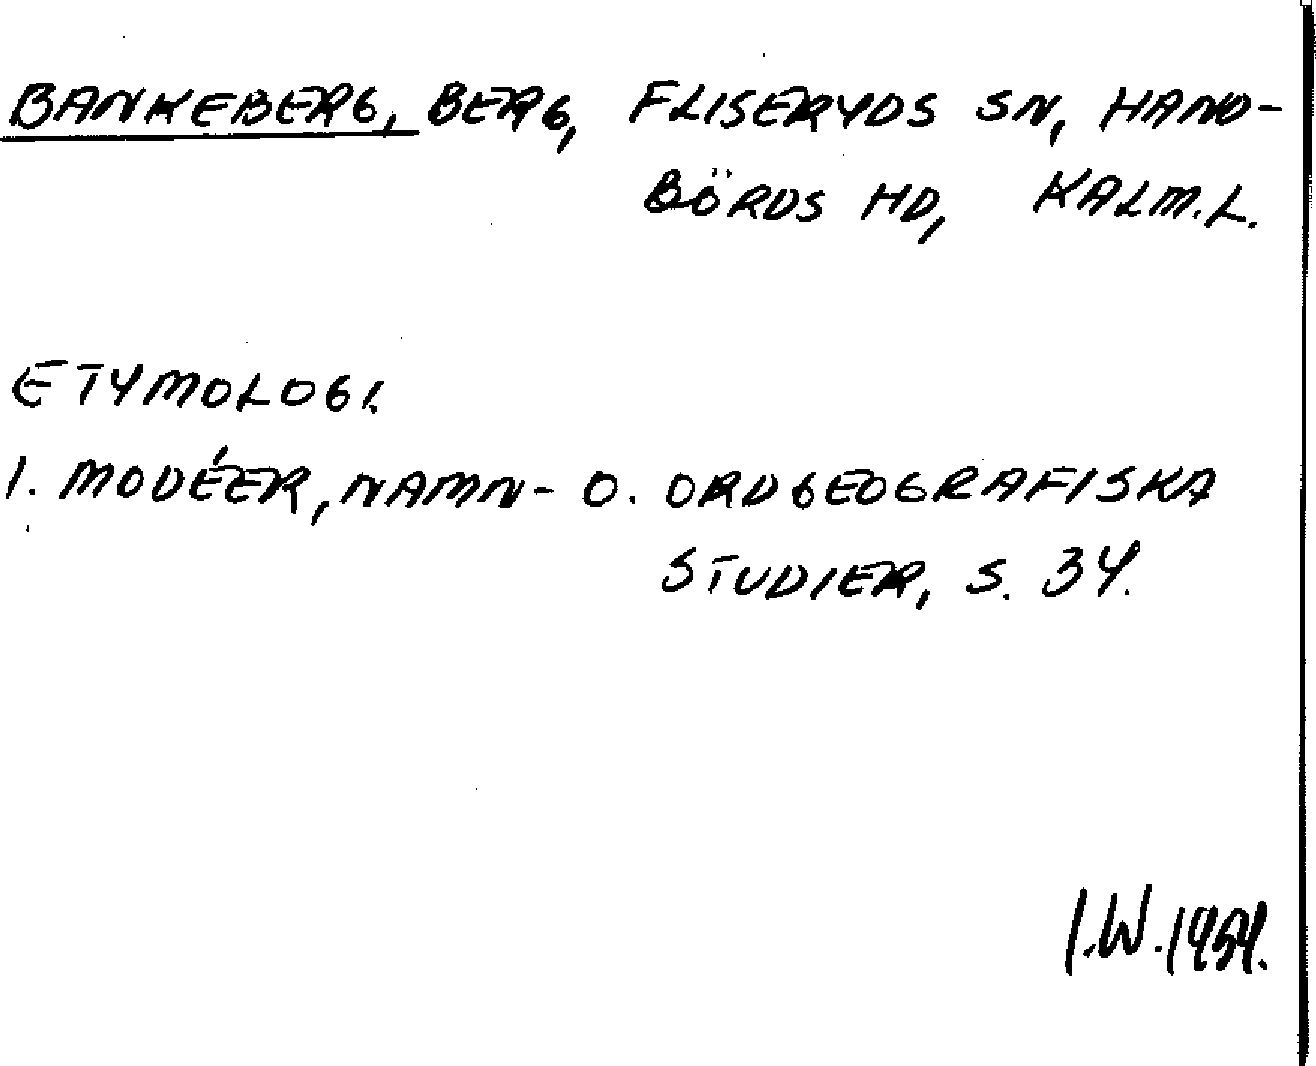 BANKEBERG, BERG, FLISERYDS SN, HAND-
BÖRDS HD, KALM.L.
ETYMOLOGI.
I. MODÉER, NAMN- O. ORDGEOGRAFISKA
STUDIER, S. 34.
I.W. 1954.